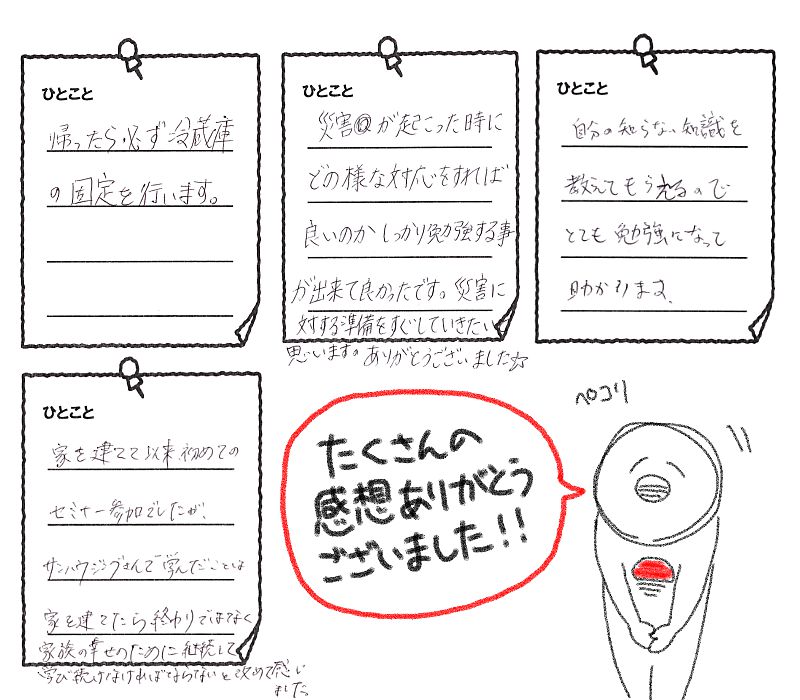 ひとこと
帰ったら必ず冷蔵庫
の固定を行います。
ひとこと
災害が起こった時に
どの様な対応をすれば
良いのかしっかり勉強する事
が出来て良かったです。災害に
対する準備をすぐしていきたい
思います。ありがとうございました☆
ひとこと
自分の知らない知識を
教えてもらえるので
とても勉強になって
助かります。
ひとこと
家を建てて以来初めての
セミナー参加でしたが、
サンハウジングさんで学んだことは
家を建てたら終わりではなく
家族の幸せのために継続して
学び続けなければならないと改めて感い
ました
たくさんの
感想ありがとう
ございました!!
ペコリ